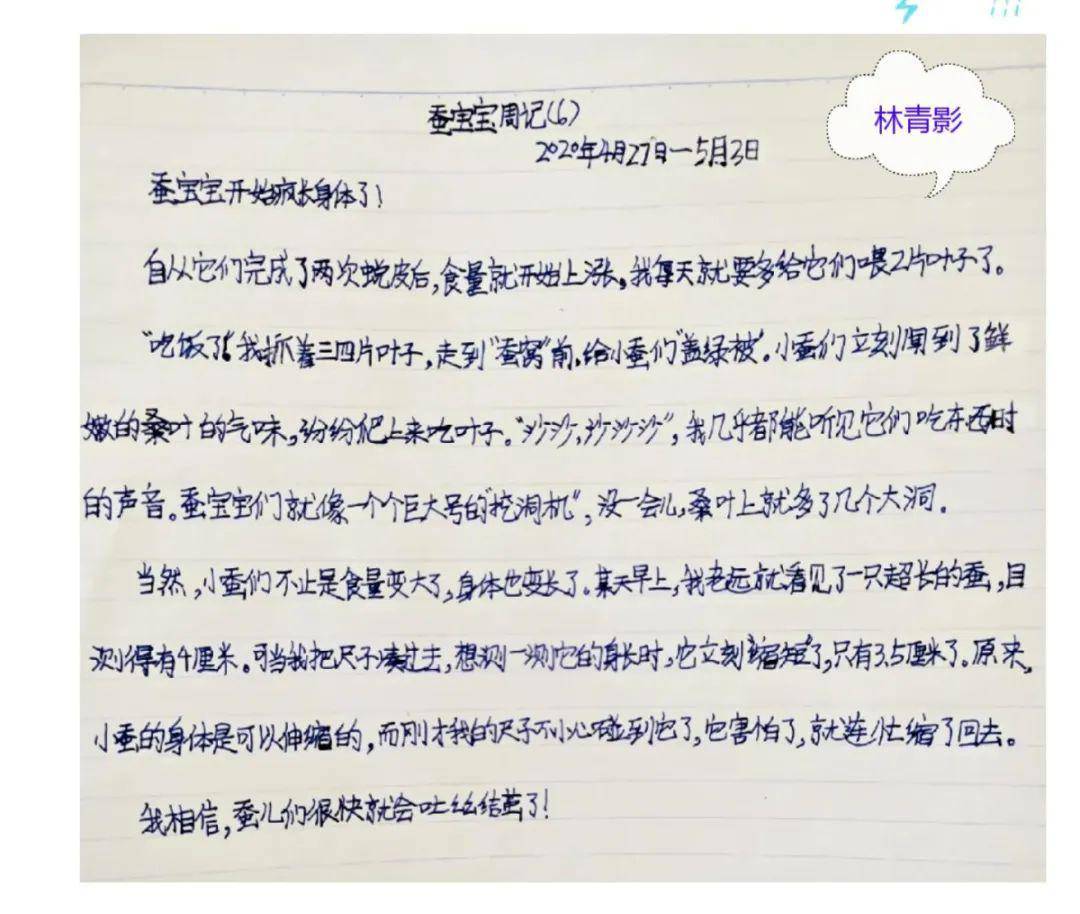 林青影
蚕宝宝周记(6)
2020年4月27日一5月3日
蚕宝宝开始疯长身体了!
自从它们完成了两次蜕皮后,食量就开始上涨。我每天就要多给它们喂2片叶子了。
“吃饭了!”我抓着三四片叶子,走到“蚕窝”前,给小蚕们“盖绿被”。小蚕们立刻闻到了鲜
嫩的桑叶的气味,纷纷爬上来吃叶子。“沙沙,沙沙沙”,我几乎都能听见它们吃东西时
的声音。蚕宝宝们就像一个个巨大号的“挖洞机”,没一会儿,桑叶上就多了几个大洞.
当然,小蚕们不止是食量变大了,身体也变长了。某天早上,我老远就看见了一只超长的蚕,目
测得有4厘米。可当我把尺子凑过去,想测一测它的身长时,它立刻“缩短”了,只有3.5厘米了。原来,
小蚕的身体是可以伸缩的,而刚才我的尺子不小心碰到它了,它害怕了,就连忙缩了回去。
我相信,蚕儿们很快就会吐丝结茧了!